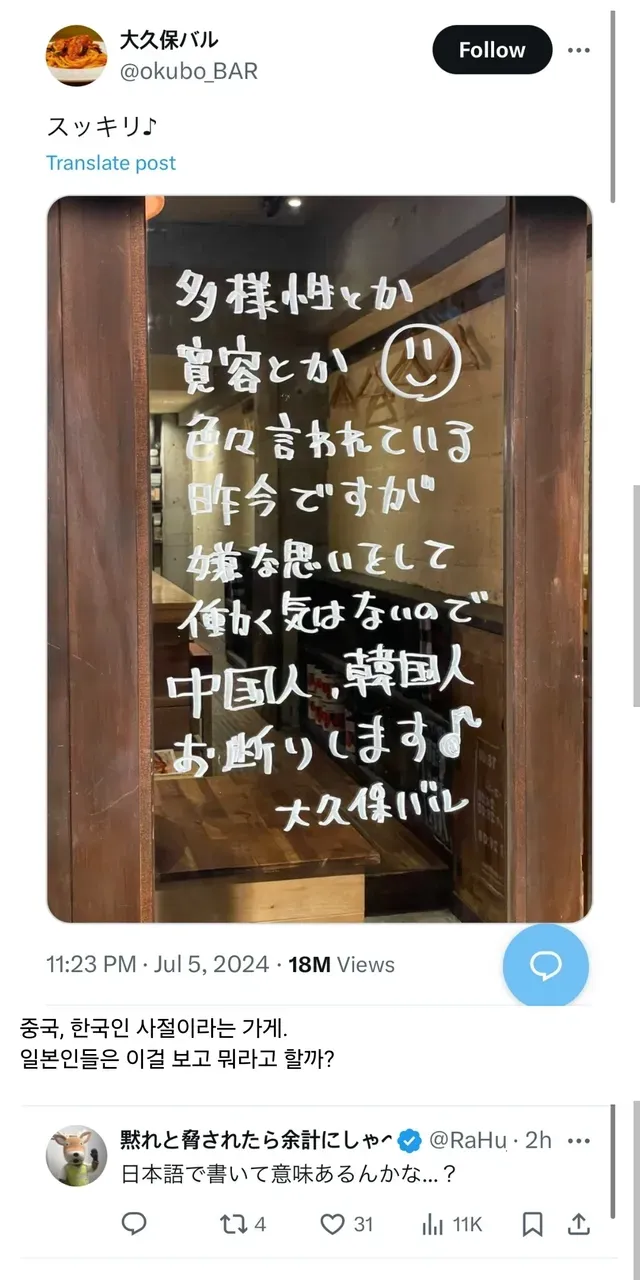 大久保バル
@okubo_BAR
Follow
スッキリ♪
Translate post
多様性とか
寛容とか
色々言われている
昨今ですが
嫌な思いをして
働く気はないので
中国人、韓国人
お断りします♪
大久保バル
11:23 PM · Jul 5, 2024 · 18M Views
중국, 한국인 사절이라는 가게.
일본인들은 이걸 보고 뭐라고 할까?
黙れと脅されたら余計にしゃべ @RaHu · 2h
日本語で書いて意味あるんかな...？
4 31 11K